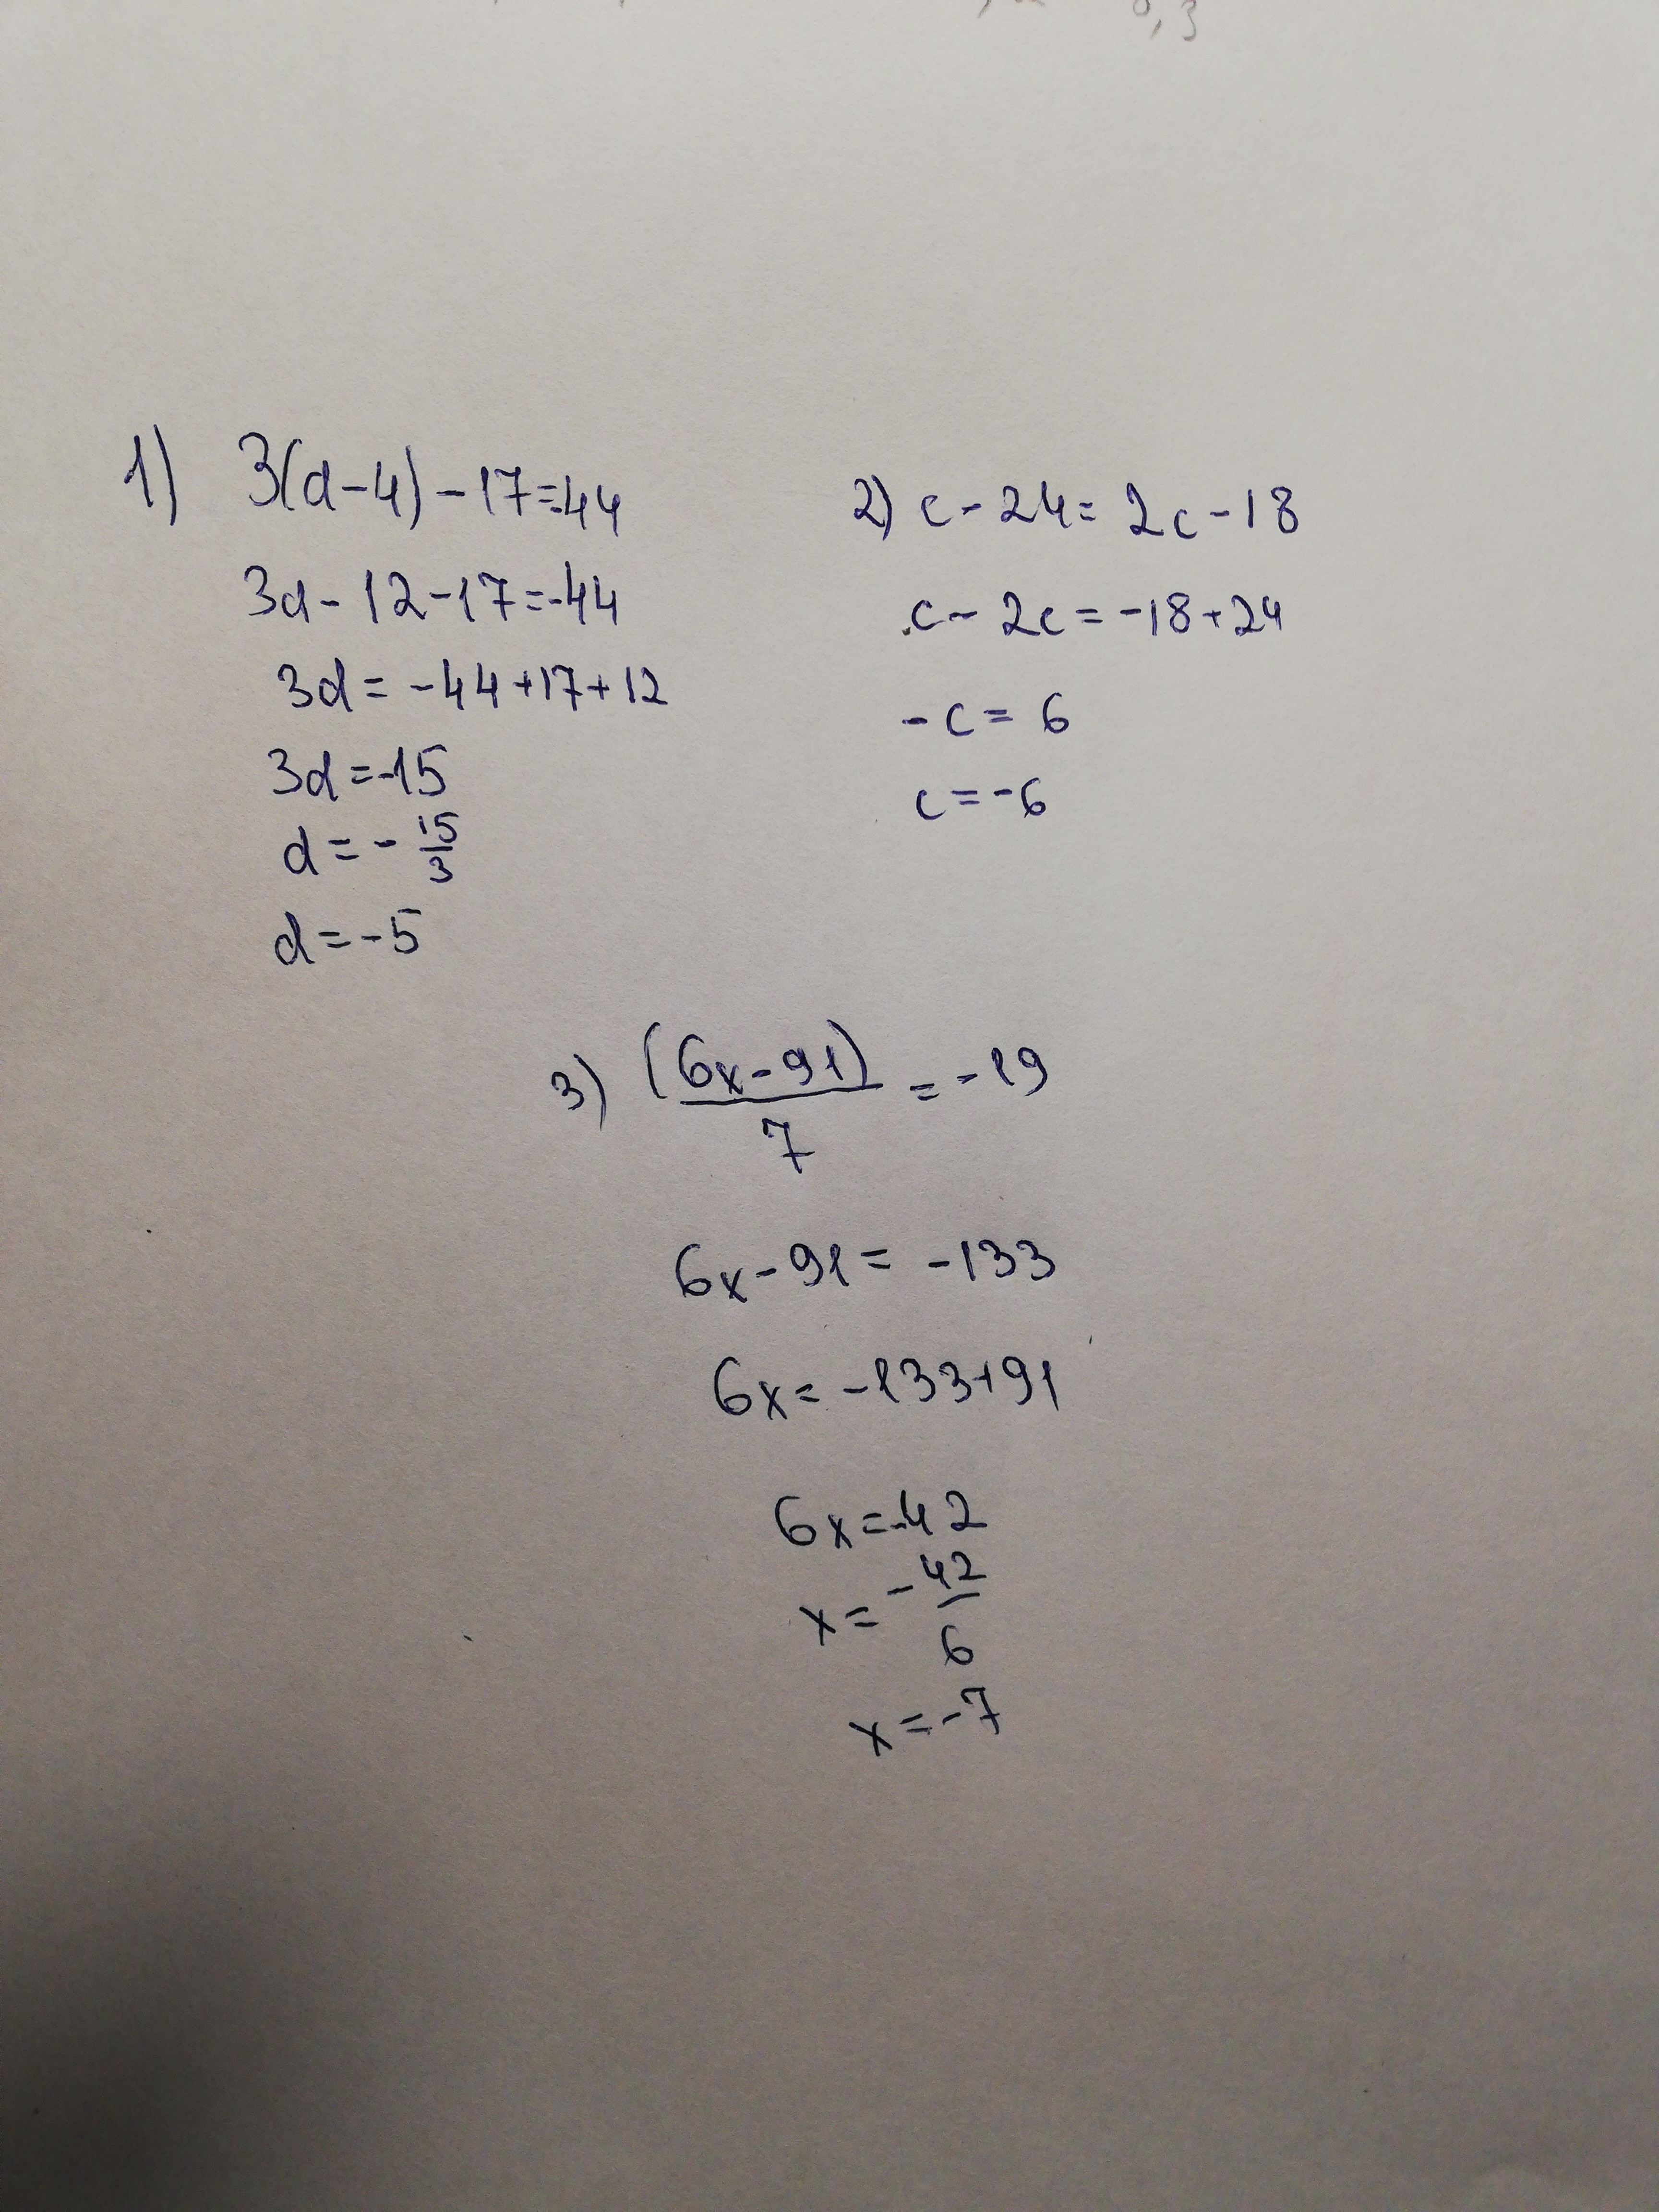 0,3
1) 3(d-4)-17=-44
3d-12-17=-44
3d=-44+17+12
3d=-15
d=-15/3
d=-5
2) c-24=2c-18
c-2c=-18+24
-c=6
c=-6
3) (6x-91)/7=-19
6x-91=-133
6x=-133+91
6x=-42
x=-42/6
x=-7